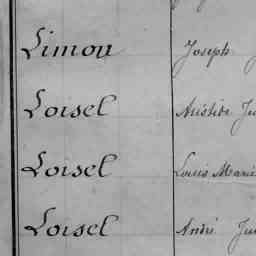 Limou Joseph
Loisel Aristide Ju
Loisel Louis Marie
Loisel André Ju